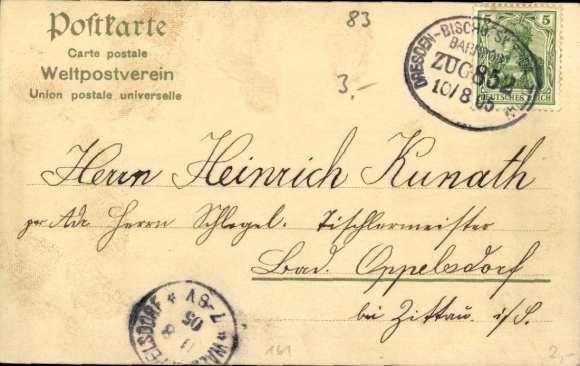 Postkarte
Carte postale
Weltpostverein
Union postale universelle
83
3,-
5
DEUTSCHES REICH
DRESDEN-BISCHOFSWERDA
BAHNPOST
ZUG 852
10/8 05
Herrn Heinrich Kunath
per Adr. Herrn Schlegel. Tischlermeister
Bad. Oppelsdorf
bei Zittau. i/S.
OPPELSDORF
11 8
05
7-8V
161
2,-